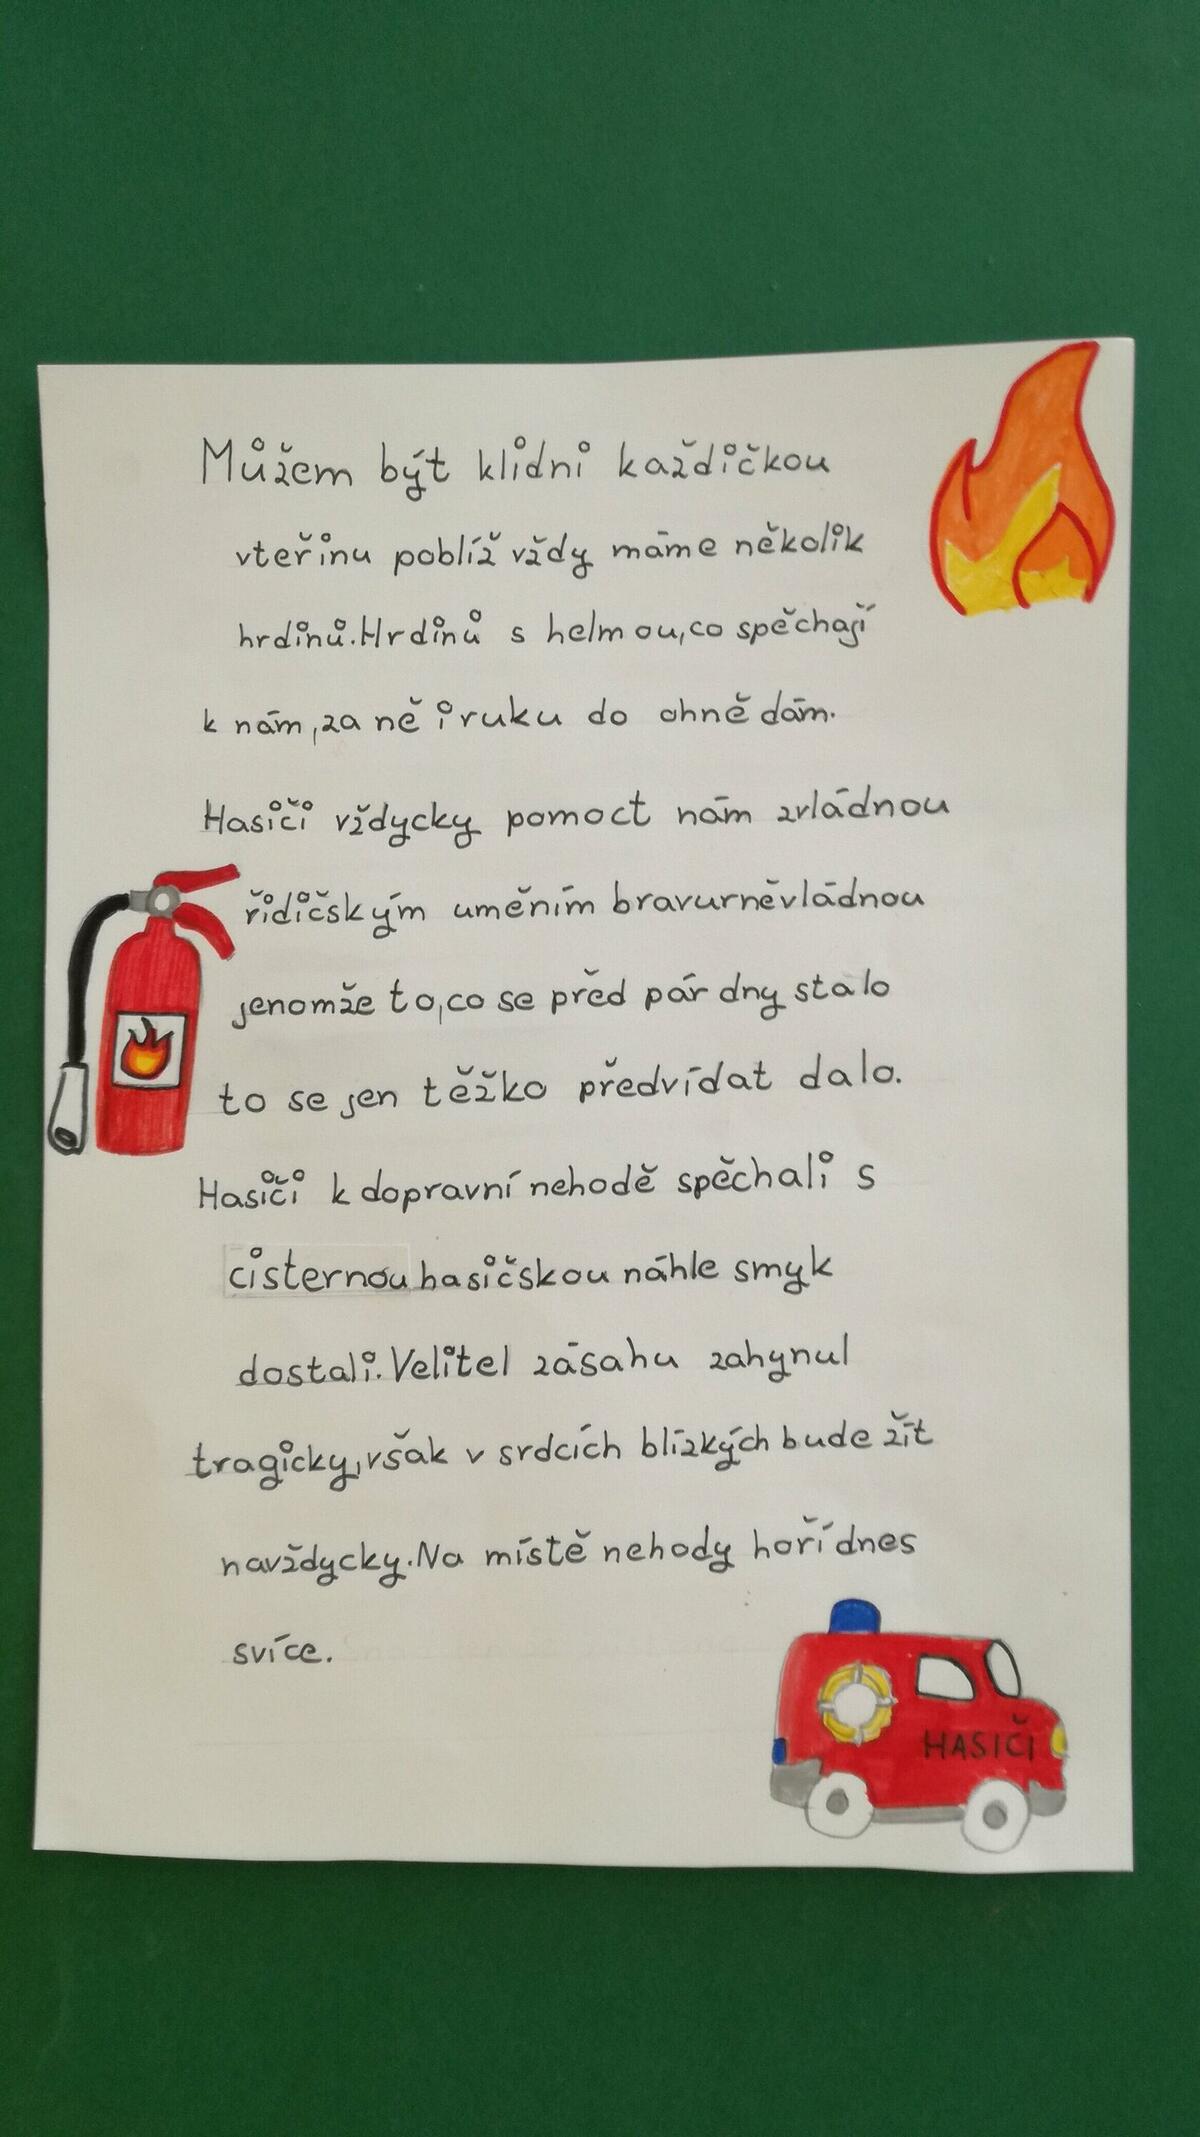 Můžem být klidni každičkou
vteřinu poblíž vždy máme několik
hrdinů. Hrdinů s helmou, co spěchají
k nám, za ně i ruku do ohně dám.
Hasiči vždycky pomoct nám zvládnou
řidičským uměním bravurně vládnou
jenomže to, co se před pár dny stalo
to se jen těžko předvídat dalo.
Hasiči k dopravní nehodě spěchali s
cisternou hasičskou náhle smyk
dostali. Velitel zásahu zahynul
tragicky, však v srdcích blízkých bude žít
navždycky. Na místě nehody hoří dnes
svíce.
HASIČI